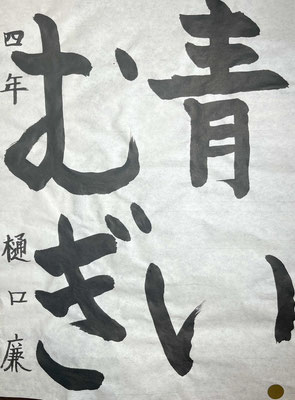 青い
むぎ
四年 樋口廉